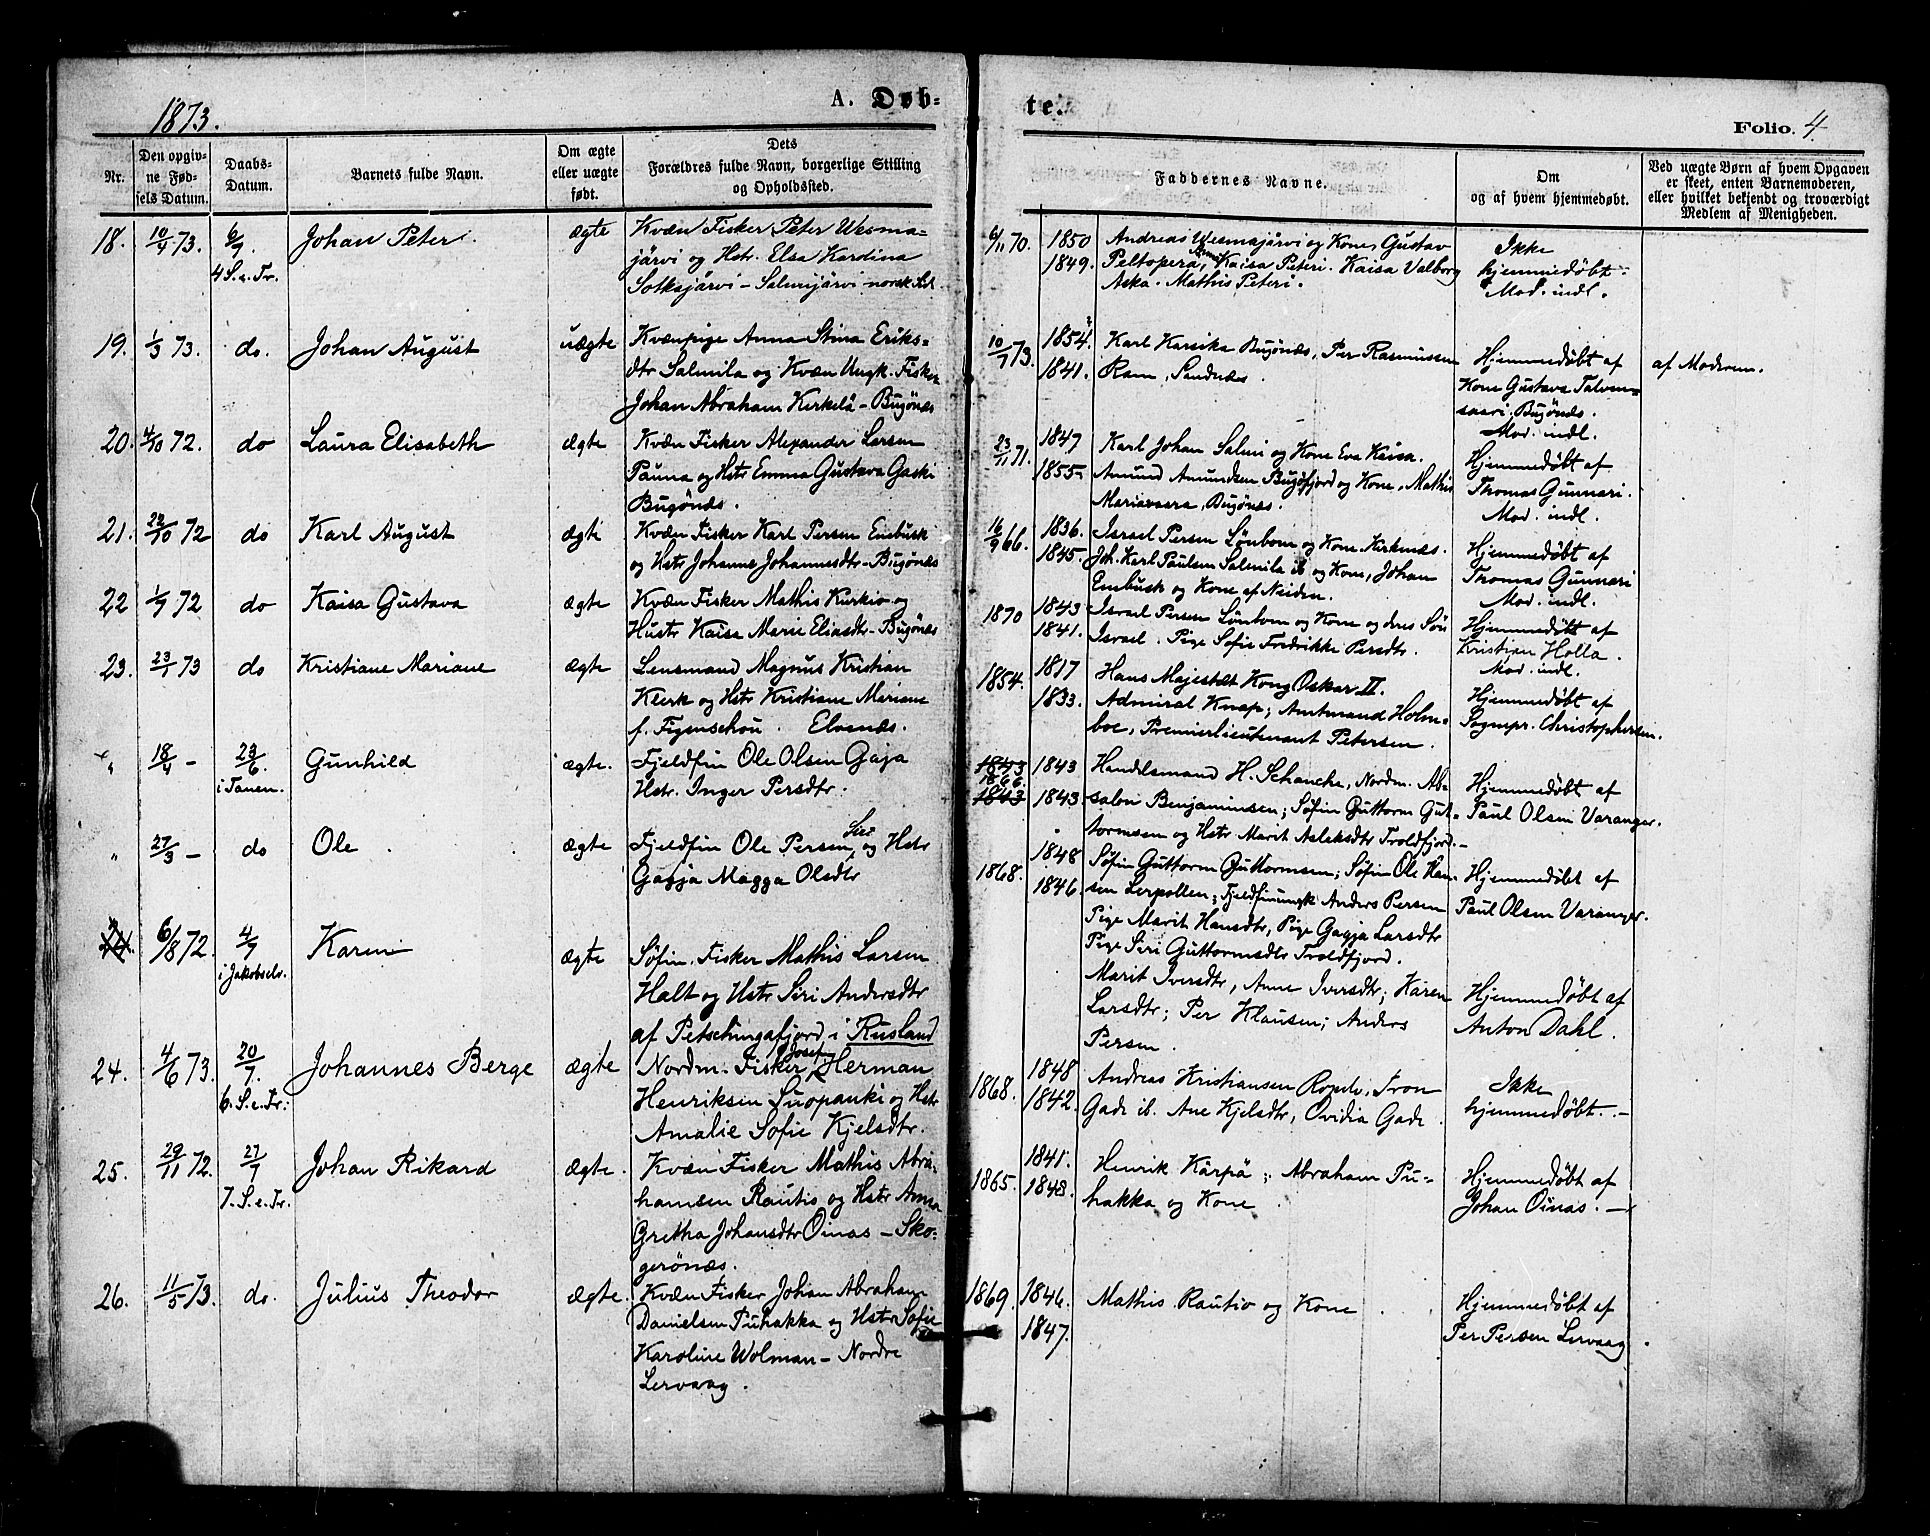 1873.
A. Døb-
te.
Folio. 4
Nr.
Den opgiv-
ne Fød-
sels Datum.
Daabs-
Datum.
Barnets fulde Navn.
Om ægte
eller uægte
født.
Dets
Forældres fulde Navn, borgerlige Stilling
og Opholdssted.
Faddernes Navne.
Om
og af hvem hjemmedøbt.
Ved uægte Børn af hvem Opgaven
er skeet, enten Barnemoderen,
eller hvilket bekjendt og troværdigt
Medlem af Menigheden.
18. 10/4 73. 6/7 Johan Peter. ægte
4 S. e. Tr.
Kvæn Fisker Peter Wesma-
järvi og Hstr. Elsa Kardina
Sotkajärvi – Salmijärvi norsk Sd.
6/11 70. 1850
1849.
Andreas Wesmajärvi og Kone, Gustav
Peltopera, Kaisa Peteri. Kaisa Valborg
Aska. Mathis Peteri.
Ikke
hjemmedøbt.
Mod. indl.
19. 1/3 73. do. Johan August uægte
Kvænpige Anna Stina Eriks-
dtr Salmila og Kvæn Ungk. Fisker
Johan Abraham Kerkelä – Bugönæs
10/7 73. 1854.
1841.
Karl Karsika Bugönæs, Per Rasmussen
Ram, Sandnæs.
Hjemmedøbt af
Kone Gustava Talven-
saari. Bugönæs.
Mod. indl.
af Moderen.
20. 4/10 72. do Laura Elisabeth ægte
Kvæn Fisker Alexander Larsen
Pauna og Hstr Emma Gustava Gaski
Bugönæs.
23/11 71. 1847
1855
Karl Johan Salmi og Kone Eva Kaisa.
Amund Amundsen Bugöfjord og Kone, Mathis
Mariavaara, Bugönæs.
Hjemmedøbt af
Thomas Gunnari.
Mod. indl.
21. 22/10 72 do Karl August ægte
Kvæn Fisker Karl Persen Enebusk
og Hstr Johanne Johannesdtr – Bugönæs
16/9 66. 1836.
1845.
Israel Persen Lønbom og Kone Kirknæs.
Joh. Karl Paulsen Salmila ib og Kone, Johan
Enebusk og Kone af Neiden.
Hjemmedøbt af
Thomas Gunnari
Mod. indl.
22 1/7 72 do Kaisa Gustava ægte
Kvæn Fisker Mathis Kurkio og
Hustr Kaisa Marie Eliasdtr – Bugönæs
1870 1843
1841.
Israel Persen Lønbom og Kone og deres Søn
Israel. Pige Sofie Fredrikke Persdtr.
Hjemmedøbt af
Kristian Holla.
Mod. indl.
23. 23/1 73 do Kristiane Mariane ægte
Lensmand Magnus Kristian
Klerk og Hstr Kristiane Mariane
f. Figenschou. Elvenæs.
1854. 1817
1833.
Hans Majestæt Kong Oskar II.
Admiral Knap; Amtmand Holm-
boe, Premierlieutenant Petersen.
Hjemmedøbt af
Sognepr. Christophersen.
" 18/4 – 23/6. Gunhild ægte.
i Tanen.
Fjeldfin Ole Olsen Gaja
Hstr. Inger Persdtr.
1843
1866.
1843
1843
1843
Handelsmand H. Schanche, Nordm. Ab-
salon Benjaminsen; Søfin Guttorm Gut-
tormsen og Hstr Marit Aslaksdtr Troldfjord.
Hjemmedøbt af
Paul Olsen Varanger.
" 27/3 – do Ole ægte
Siri
Fjeldfin Ole Persen og Hstr
Gagja Magga Olsdtr
1868. 1848
1846.
Søfin Guttorm Guttormsen; Søfin Ole Han-
sen Lerpollen; Fjeldfinungk Anders Persen
Pige Marit Hansdtr, Pige Gagja Larsdtr
Pige Siri Guttormsdtr Troldfjord.
Hjemmedøbt af
Paul Olsen Varanger.
6/8 72. 4/7 Karen ægte
i Jakobselv.
Søfin. Fisker Mathis Larsen
Halt og Hstr Siri Andersdtr
af Petschingafjord i Rusland
Marit Iversdtr, Anne Iversdtr; Karen
Larsdtr; Per Klausen; Anders
Persen.
Hjemmedøbt af
Anton Dahl.
24. 4/6 73. 20/7. Johannes Berge ægte
6. S. e. Tr.
Josef
Nordm. Fisker Herman
Henriksen Suopanki og Hstr
Amalie Sofie Kjelsdtr.
1868. 1848
1842.
Andreas Kristiansen Ropels, Tron
Gade ib. Ane Kjelsdtr, Ovidia Gade.
Ikke
hjemmedøbt. –
25. 29/11 72. 27/7 Johan Rikard ægte.
7. S. e. Tr.
Kvæn Fisker Mathis Abra-
hamsen Rautio og Hstr Anna
Gretha Johansdtr Oinas – Sko-
gerönæs.
1865. 1841.
1848.
Henrik Kärpä; Abraham Pu-
hakka og Kone.
Hjemmedøbt af
Johan Oinas. –
26. 11/5 73. do. Julius Theodor ægte.
Kvæn Fisker Johan Abraham
Danielsen Puhakka og Hstr Sofie
Karoline Wolman – Nordre
Lervaag.
1869. 1846.
1847.
Mathis Rautio og Kone.
Hjemmedøbt af
Per Persen Lervaag.